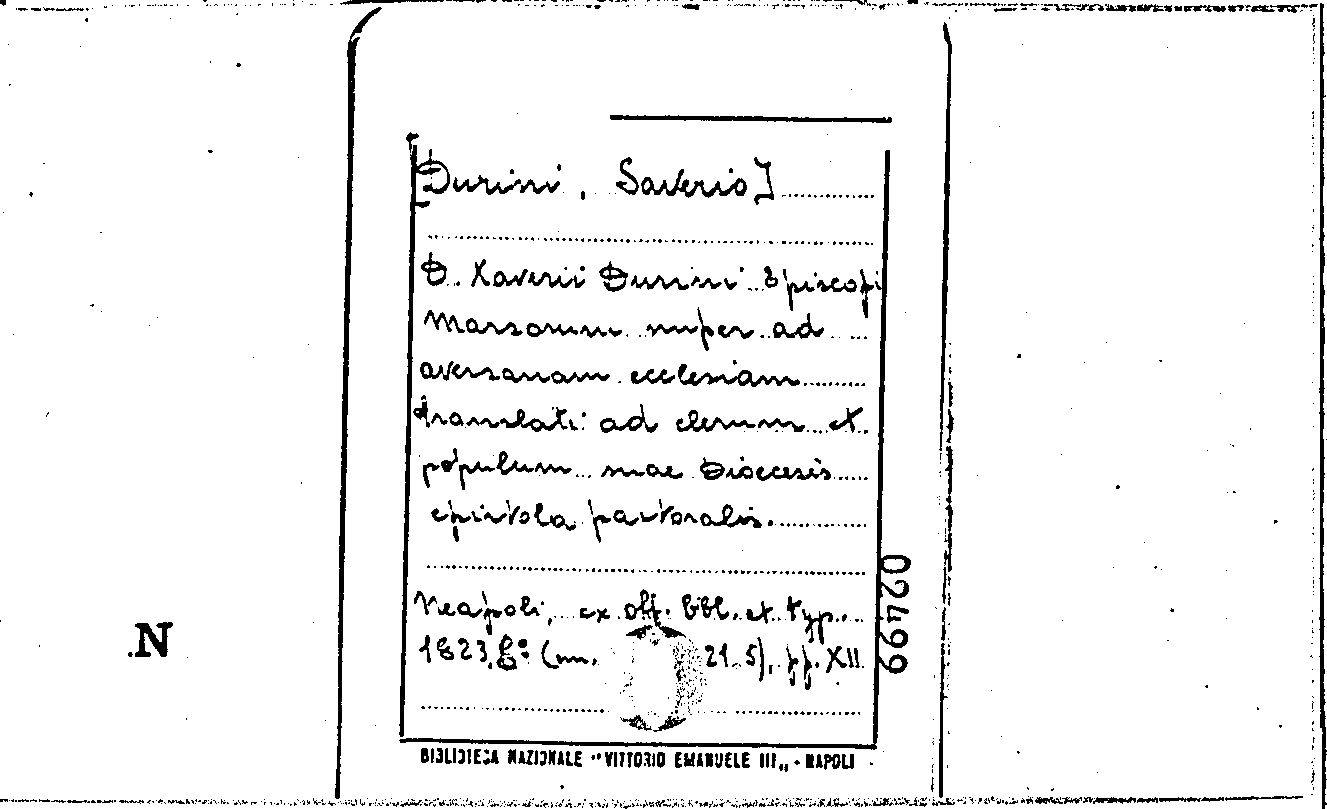 [Durini, Saverio]
D. Xaverii Durini Episcopi
Marsorum nuper ad
aversanam ecclesiam
translati ad clerum et
populum suae Dioecesis
epistola pastoralis.
Neapoli, ex off. bibl. et typ.
1823, 8º (mm. 21 5), pp. XII
02499
.N
BIBLIOTECA NAZIONALE "VITTORIO EMANUELE III„ - NAPOLI